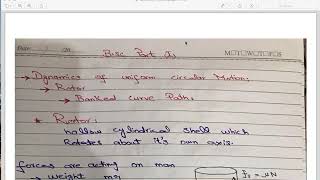 Date: / /20
MOTOWOTOPOS
B.sc Part I
→ Dynamics of uniform circular Motion:
→ Rotor
→ Banked curve Path.
* Rotor:
hollow cylindrical shell which
Rotates about it's own axis.
forces are acting on man
→ Weight mg